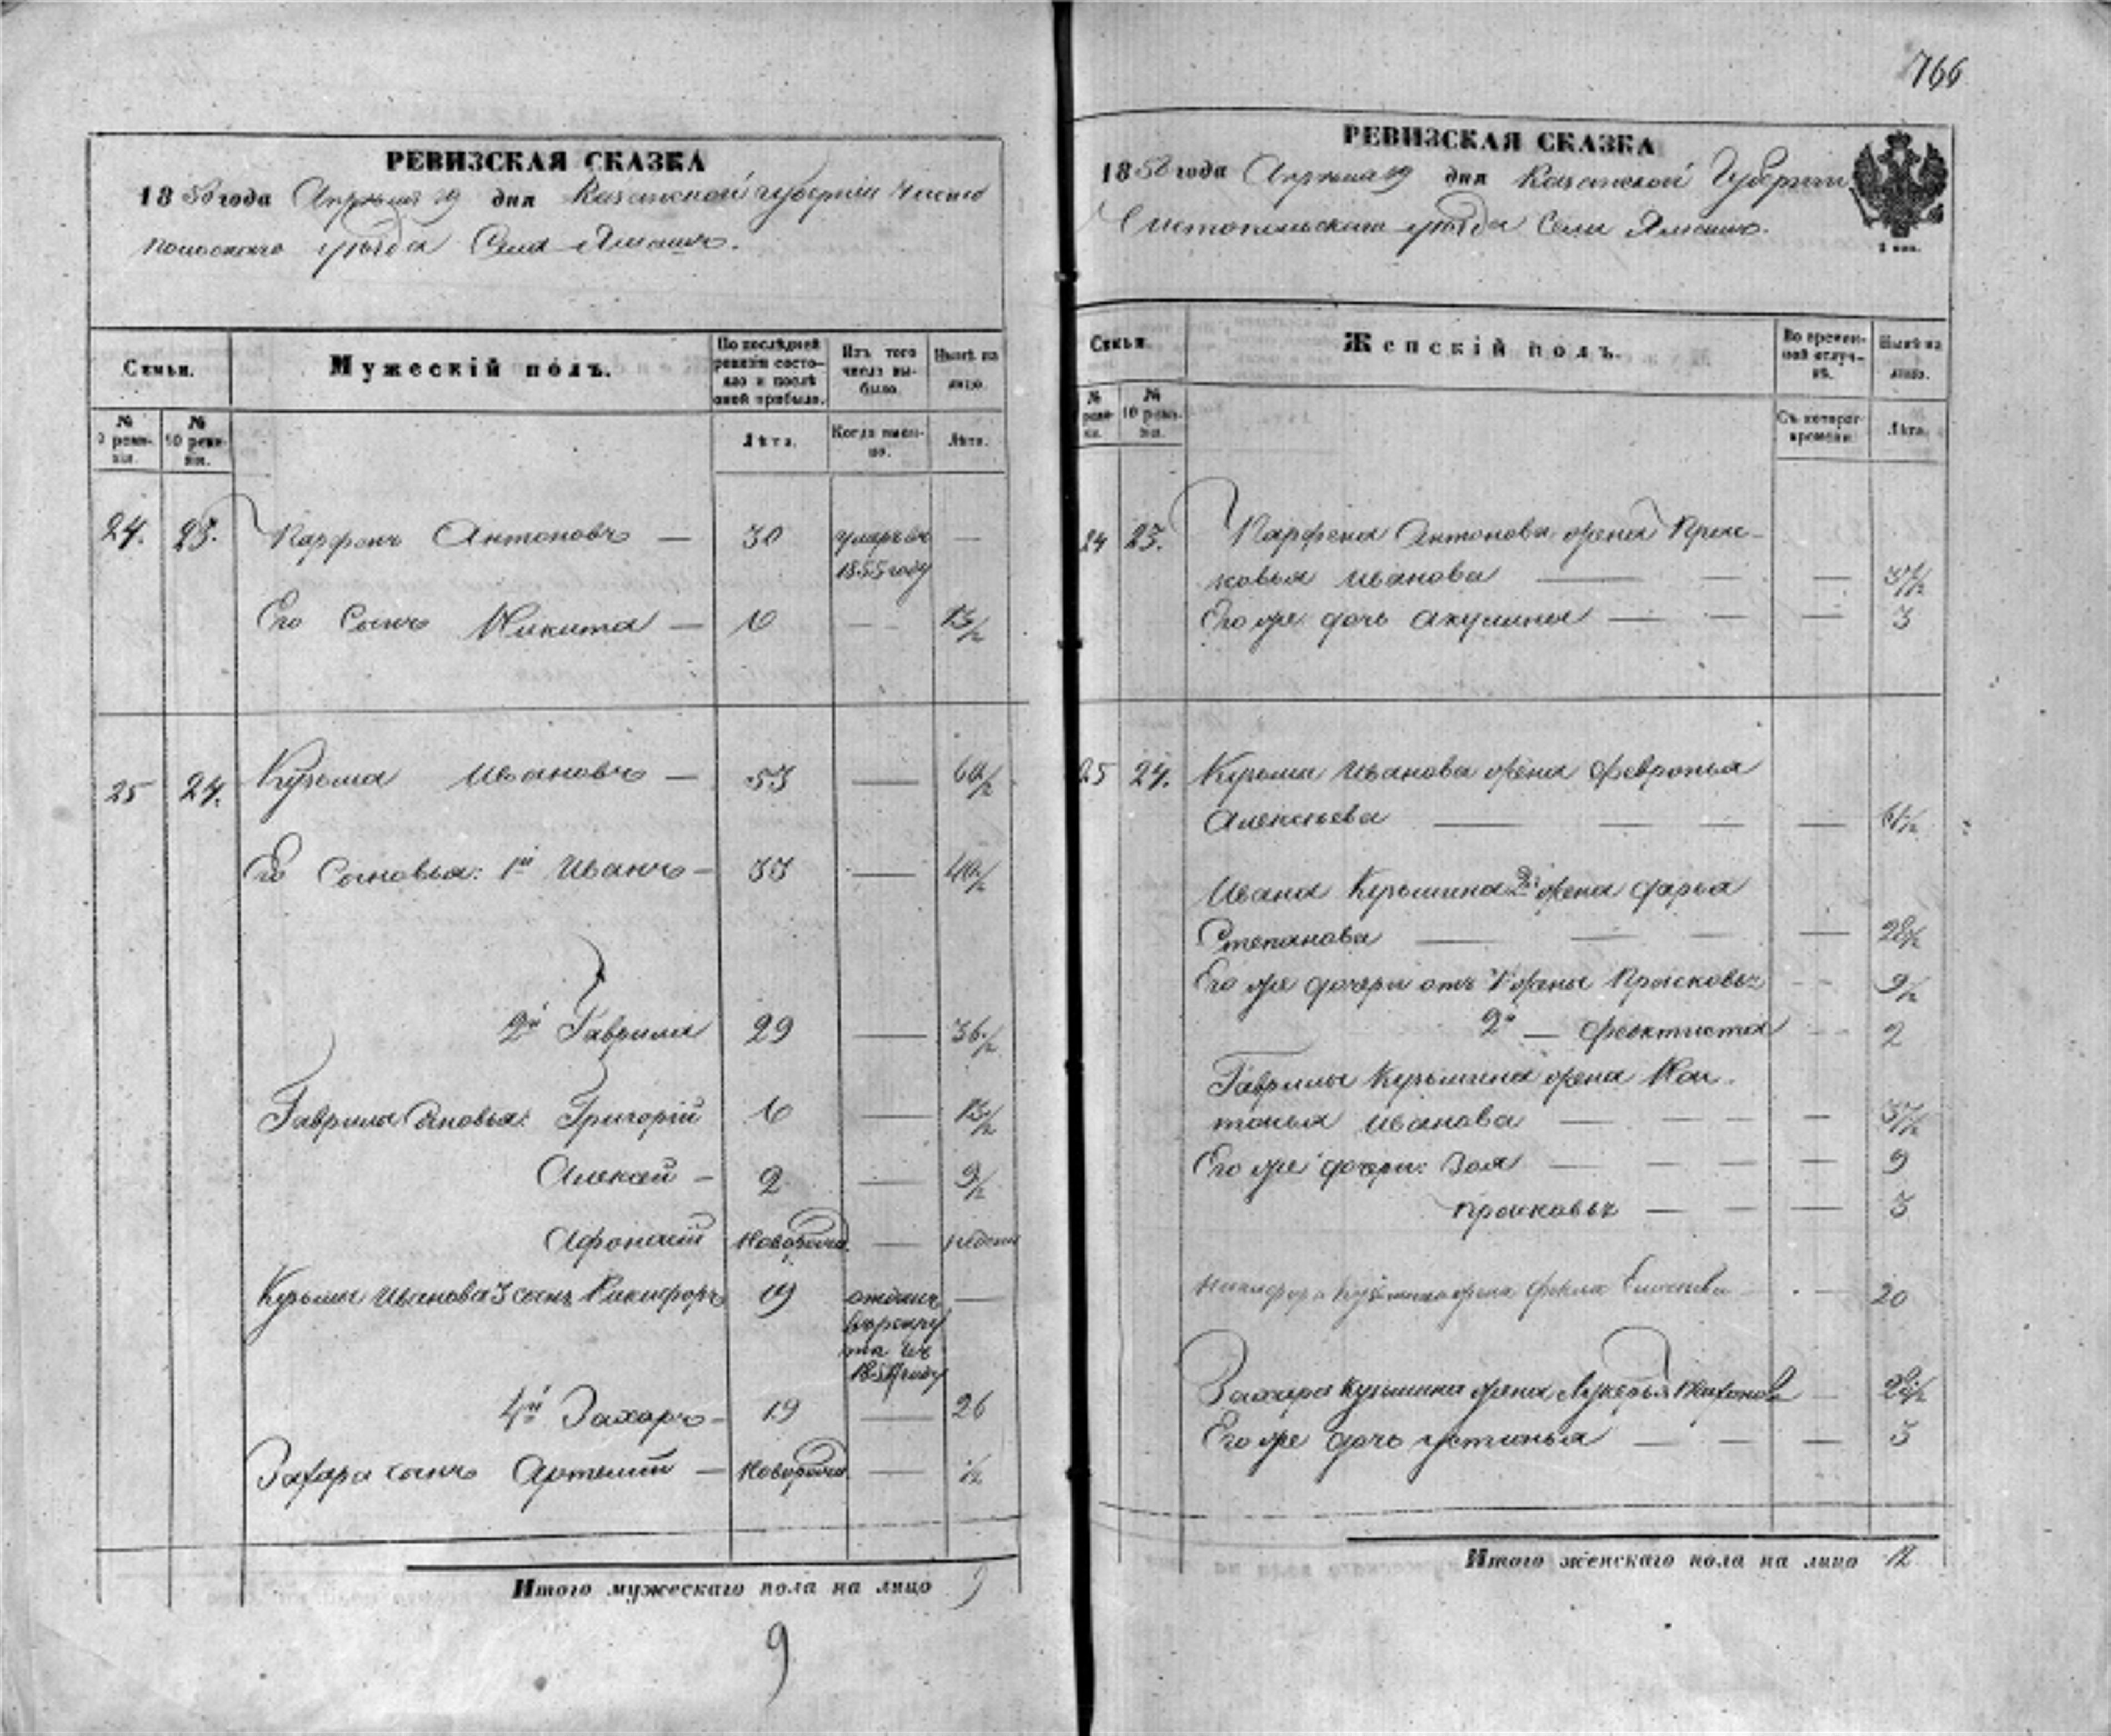 766
РЕВИЗСКАЯ СКАЗКА
1858 года Апреля 19 дня Казанской губернии Чисто
польского уѣзда Села Ямашъ.
Семьи.
Мужескій полъ.
По послѣдней ревизіи состояло и послѣ оной прибыло.
Изъ того числа выбыло.
Нынѣ на лицо.
№ ревизіи.
№ 10 ревизіи.
Лѣта.
Когда именно.
Лѣта.
24. 23. Парфенъ Антоновъ — 30 умеръ въ —
1855 году
Его Сынъ Никита — 6 — 13 1/2
25 24. Кузьма Ивановъ — 53 — 60 1/2
Его Сыновья: 1й Иванъ — 33 — 40 1/2
2й Гаврила 29 — 36 1/2
Гаврила Сыновья: Григорій 6 — 13 1/2
Алексей — 2 — 9 1/2
Афонасій Новорожд. —
Кузьмы Иванова 3 сынъ Никифоръ 19 отданъ —
въ рекру
ты въ
году
4й Захаръ — 19 — 26
Захара сынъ Артемій — Новорожд. — 1/2
Итого мужескаго пола на лицо 9
9
РЕВИЗСКАЯ СКАЗКА
1858 года Апреля 19 дня Казанской Губерніи
Чистопольскаго уѣзда Села Ямашъ.
2 коп.
Семьи.
Женскій полъ.
Во временной отлучкѣ.
Нынѣ на лицо.
№ ревизіи.
№ 10 ревизіи.
Съ котораго времени.
Лѣта.
24 23. Парфена Антонова жена Прас-
ковья Иванова — — — 37 1/2
Его же дочь Акулина — — — 3
25 24. Кузьмы Иванова жена Февронья
Алексѣева — — — — 61 1/2
Ивана Кузьмина 2я жена Дарья
Степанова — — — — 28 1/2
Его же дочери отъ 1 жены Прасковья — 9 1/2
2я — Феоктиста — 2
Гаврилы Кузьмина жена
Иванова — — — — 37 1/2
Его же дочери: Зоя — — — — 9
Прасковья — — — 3
Никифора Кузьмина жена Фекла — 20
Захара Кузьмина жена Лукерья — 28 1/2
Его же дочь Устинья — — — — 3
Итого женскаго пола на лицо 12